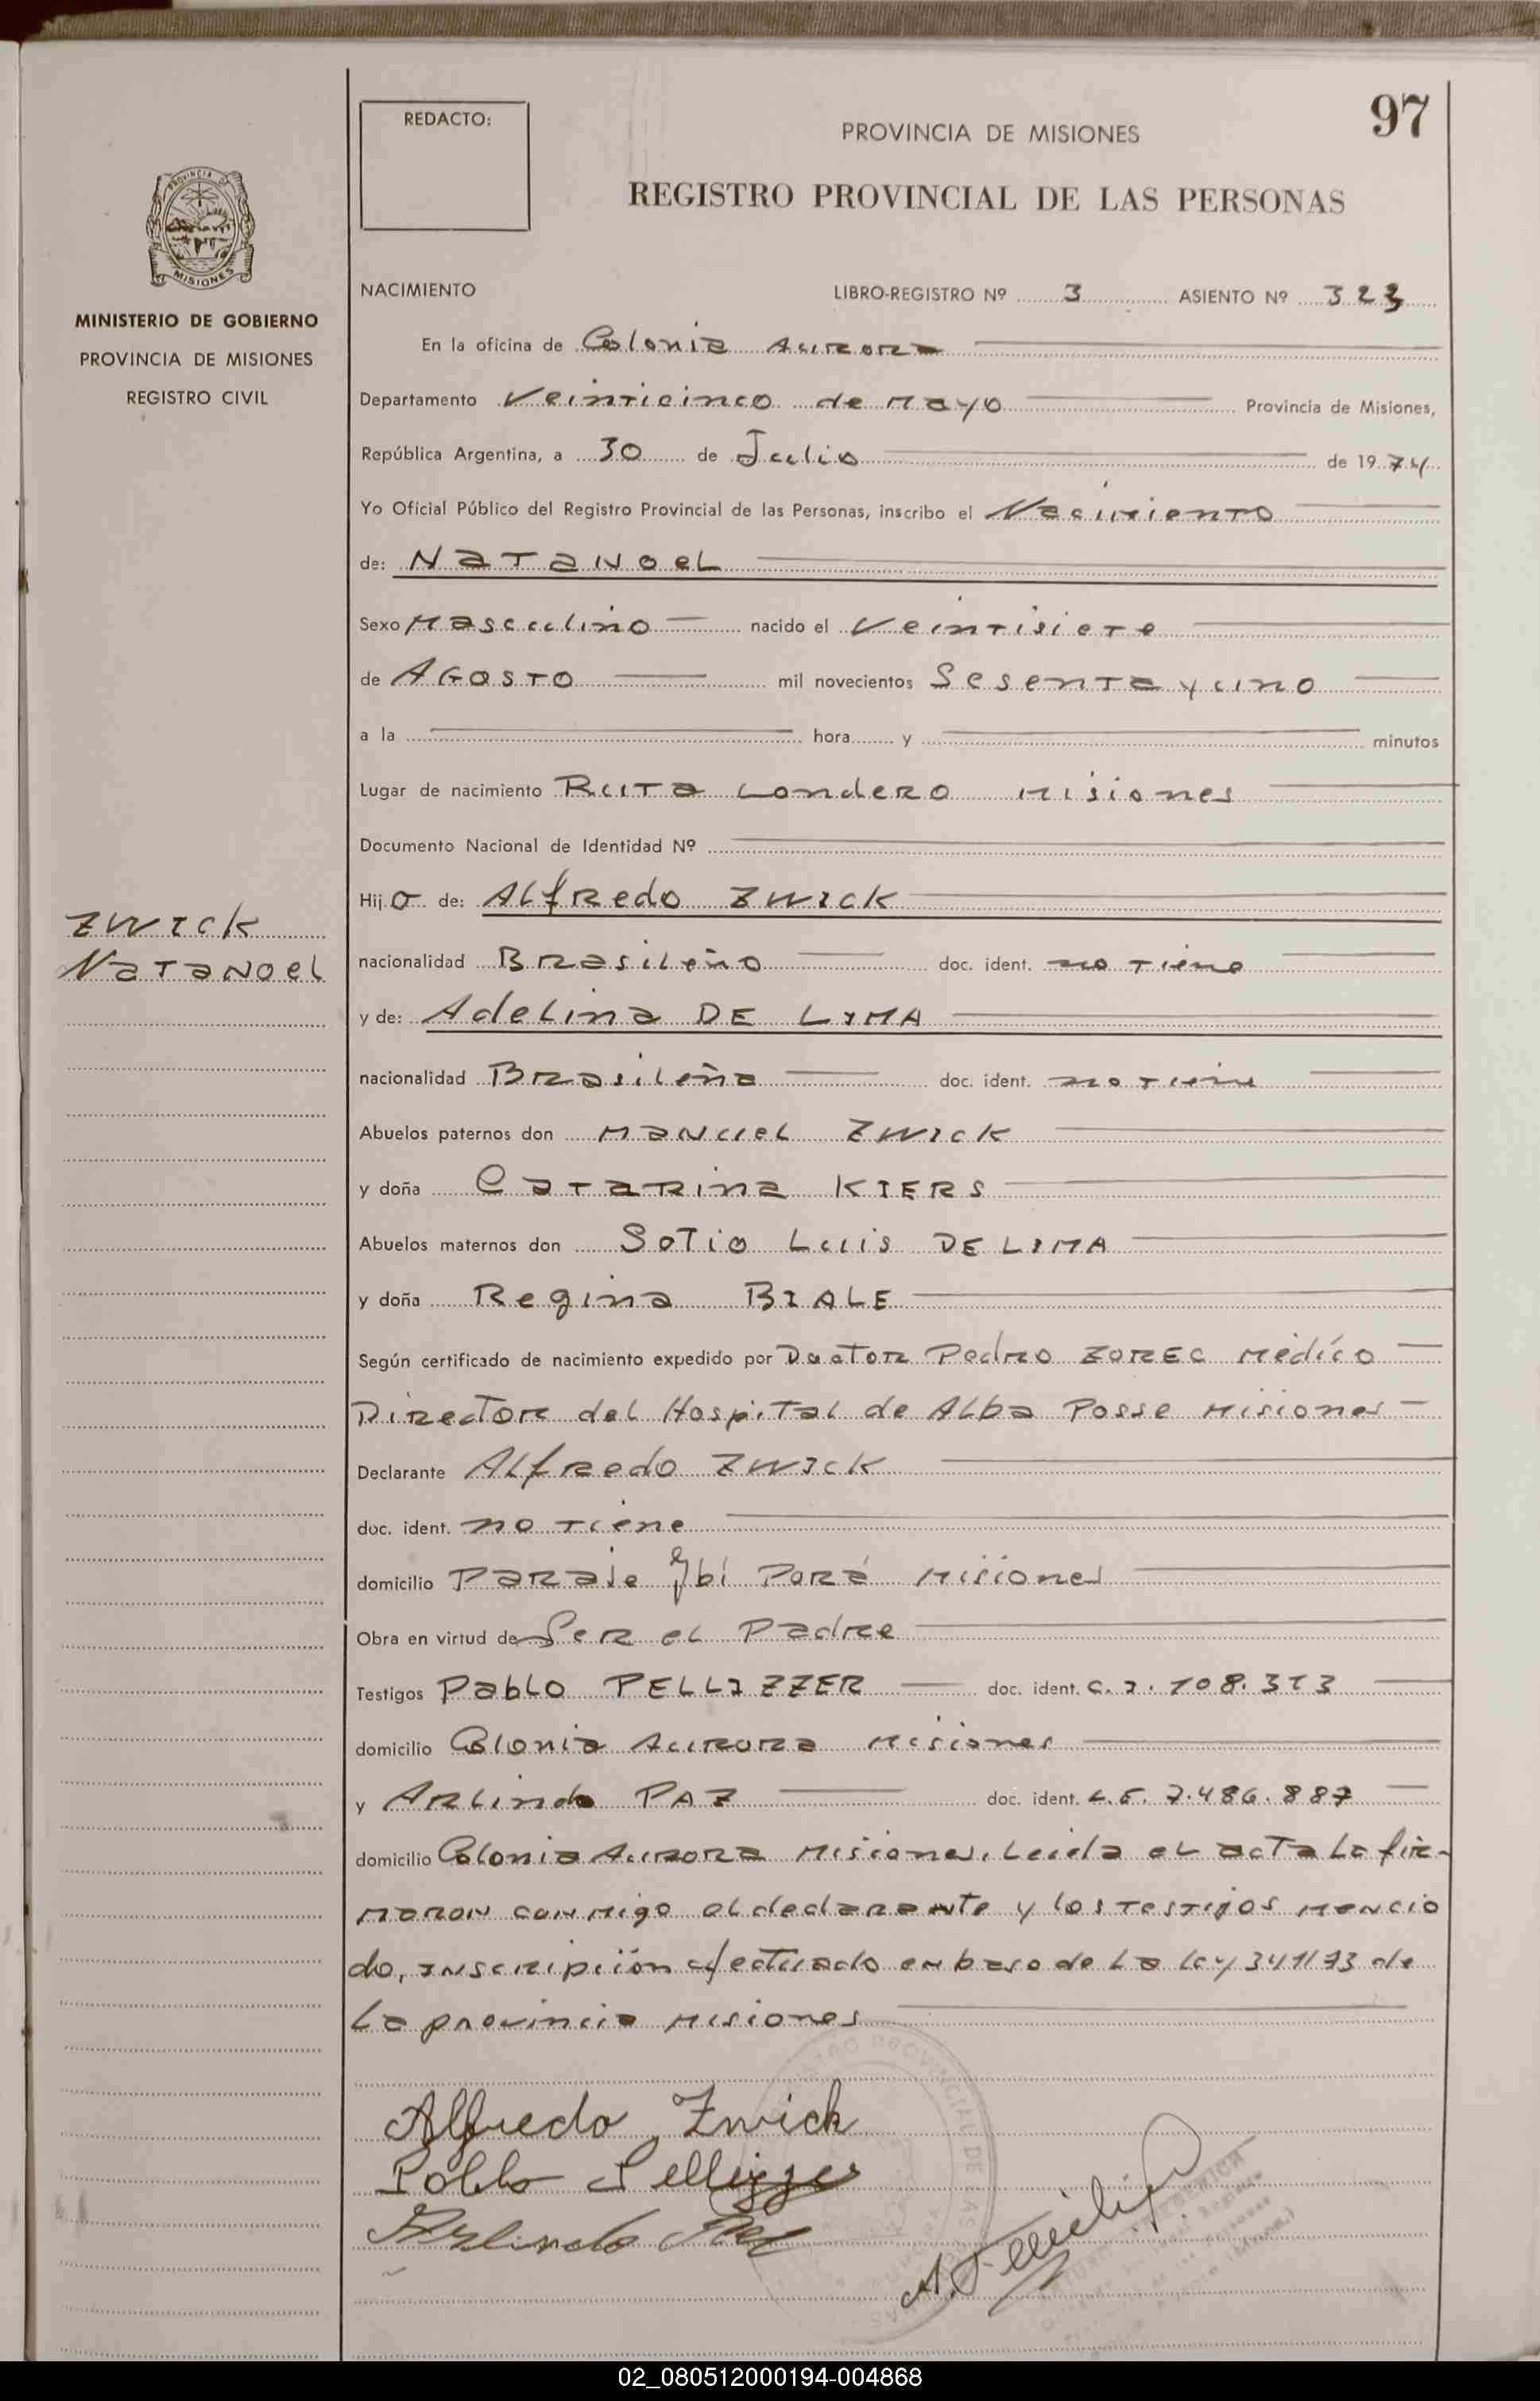 97
REDACTO:
PROVINCIA DE MISIONES
REGISTRO PROVINCIAL DE LAS PERSONAS
PROVINCIA DE
MISIONES
MINISTERIO DE GOBIERNO
PROVINCIA DE MISIONES
REGISTRO CIVIL
NACIMIENTO LIBRO-REGISTRO Nº 3 ASIENTO Nº 323
En la oficina de Colonia Aurora
Departamento Veinticinco de Mayo Provincia de Misiones,
República Argentina, a 30 de Julio de 1974
Yo Oficial Público del Registro Provincial de las Personas, inscribo el Nacimiento
de: NATANOEL
Sexo Masculino nacido el Veintisiete
de AGOSTO mil novecientos Sesenta y uno
a la hora y minutos
Lugar de nacimiento Ruta Londero Misiones
Documento Nacional de Identidad Nº
Hijo de: Alfredo ZWICK
ZWICK
NATANoel
nacionalidad Brasileño doc. ident. no tiene
y de: Adelina DE LIMA
nacionalidad Brasileña doc. ident. no tiene
Abuelos paternos don Manuel ZWICK
y doña Catarina KIERS
Abuelos maternos don Sotio Luis DE LIMA
y doña Regina BIALE
Según certificado de nacimiento expedido por Doctor Pedro ZOREC Médico
Director del Hospital de Alba Posse Misiones
Declarante Alfredo ZWICK
doc. ident. no tiene
domicilio Paraje Ybí Porá Misiones
Obra en virtud de Ser el Padre
Testigos Pablo PELLIZZER doc. ident. C.I. 108.313
domicilio Colonia Aurora Misiones
y Arlindo PAZ doc. ident. L.E. 7.486.887
domicilio Colonia Aurora Misiones, Leida el acta la fir-
maron conmigo el declarante y los testigos mencio
do, inscripción efectuado en base de la ley 341/73 de
la provincia Misiones
Alfredo Zwick
Pablo Pellizzer
Arlindo Paz
02_080512000194-004868